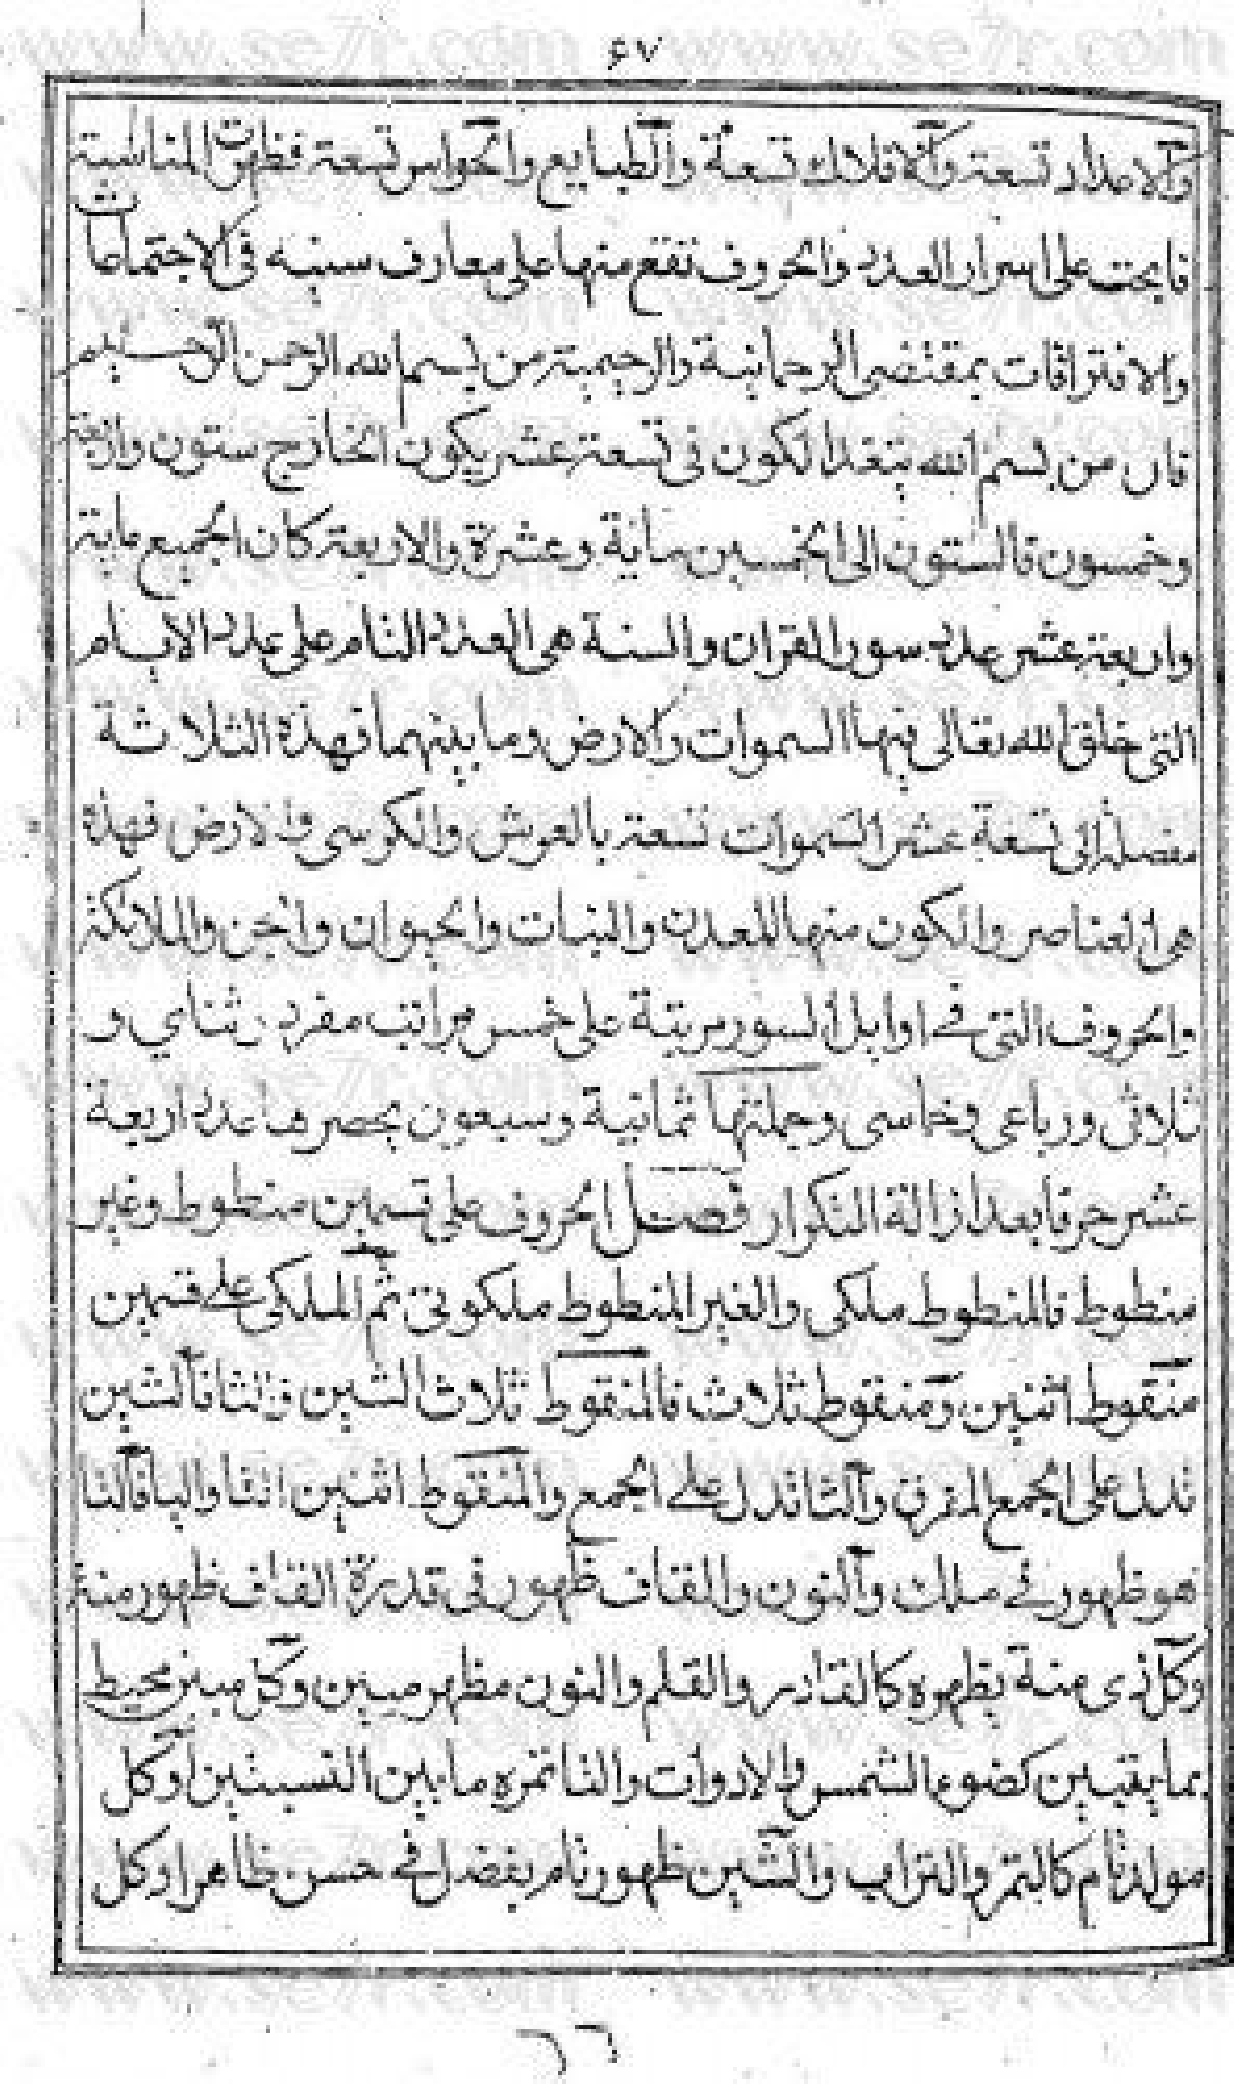 ۶۷
والاعداد تسعة والافلاك تسعة والطبايع والحواس تسعة فظهرت المناسبة
فابحث على اسرار العدد والحروف تقع منها على معارف سنيه فى الاجتماعات
والافتراقات بمقتضى الرحمانية والرحيمية من بسم الله الرحمن الرحيم
فان من بسم الله يتعد الكون فى تسعة عشر يكون الخارج ستون واربعة
وخمسون فالستون الى الخمسين ماية وعشرة والاربعة كان الجميع ماية
واربعة عشر عدد سور القران والستة هى العدد التام على عدد الايام
التى خلق الله تعالى فيها السموات والارض وما بينهما فهذه الثلاثة
مفصلة الى تسعة عشر السموات تسعة بالعرش والكرسى والارض فهذه
هى العناصر والكون منها المعدن والنبات والحيوان والجن والملائكة
والحروف التى فى اوايل السور مرتبة على خمس مراتب مفرد ثناءي و
ثلاثى ورباعى وخماسى وجملتها ثمانية وسبعون يحصرها عدد اربعة
عشر حرفا بعد ازالة التكرار فصل الحروف على قسمين منطوط وغير
منطوط فالمنطوط ملكى والغير المنطوط ملكوتى ثم الملكى على قسمين
منقوط اثنين ومنقوط ثلاث فالمنقوط ثلاث الشين والثا فالشين
تدل على الجمع المفرق والثا تدل على الجمع والمنقوط اثنين التا واليا فالتا
هو ظهور فى ملك والنون والقاف ظهور فى قدرة القاف ظهور منة
وكل ذى منة يظهره كالقادر والقلم والنون مظهر مبين وكل مبين محيط
بما يقتبين كضوء الشمس والادوات والتا ثمرة ما بين النسبتين اوكل
مولد تام كالتمر والتراب والشين ظهور تام بفضل فى حسن ظاهر اوكل
٦٦